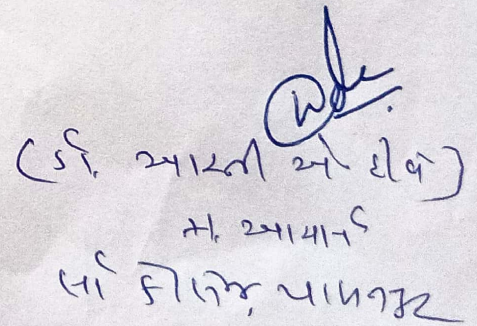 (ડૉ. આરતી એ દવે)
મ. આચાર્ય
લૉ કોલેજ, પાલનપુર